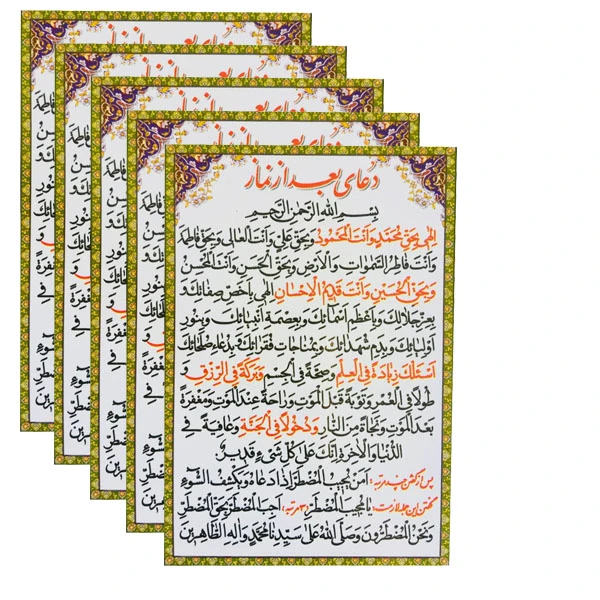 دعای بعد از نماز
بسم الله الرحمن الرحیم
الهی بحق محمد و انت المحمود و بحق علی و انت العالی و بحق فاطمة
و انت فاطر السموات و الارض و بحق الحسن و انت المحسن
و بحق الحسین و انت قدیم الاحسان الهی باخص صفاتک و
بعز جلالک و باعظم اسمائک و بعصمة انبیائک و بنور
اولیائک و بدم شهدائک و بمناجات فقرائک و بدعاء صلحائک
اسئلک زیادة فی العلم و صحة فی الجسم و برکة فی الرزق و
طولا فی العمر و توبة قبل الموت و راحة عند الموت و مغفرة
بعد الموت و نجاة من النار و دخولا فی الجنة و عافیة فی
الدنیا و الاخرة انک علی کل شیء قدیر.
پس از گفتن چند مرتبه: امن یجیب المضطر اذا دعاه و یکشف السوء
گفتن این جمله لازمست: یا مجیب المضطر ۳ مرتبه: اجب المضطر بحق المضطر
و نحن المضطرون و صلی الله علی سیدنا محمد و اله الطاهرین